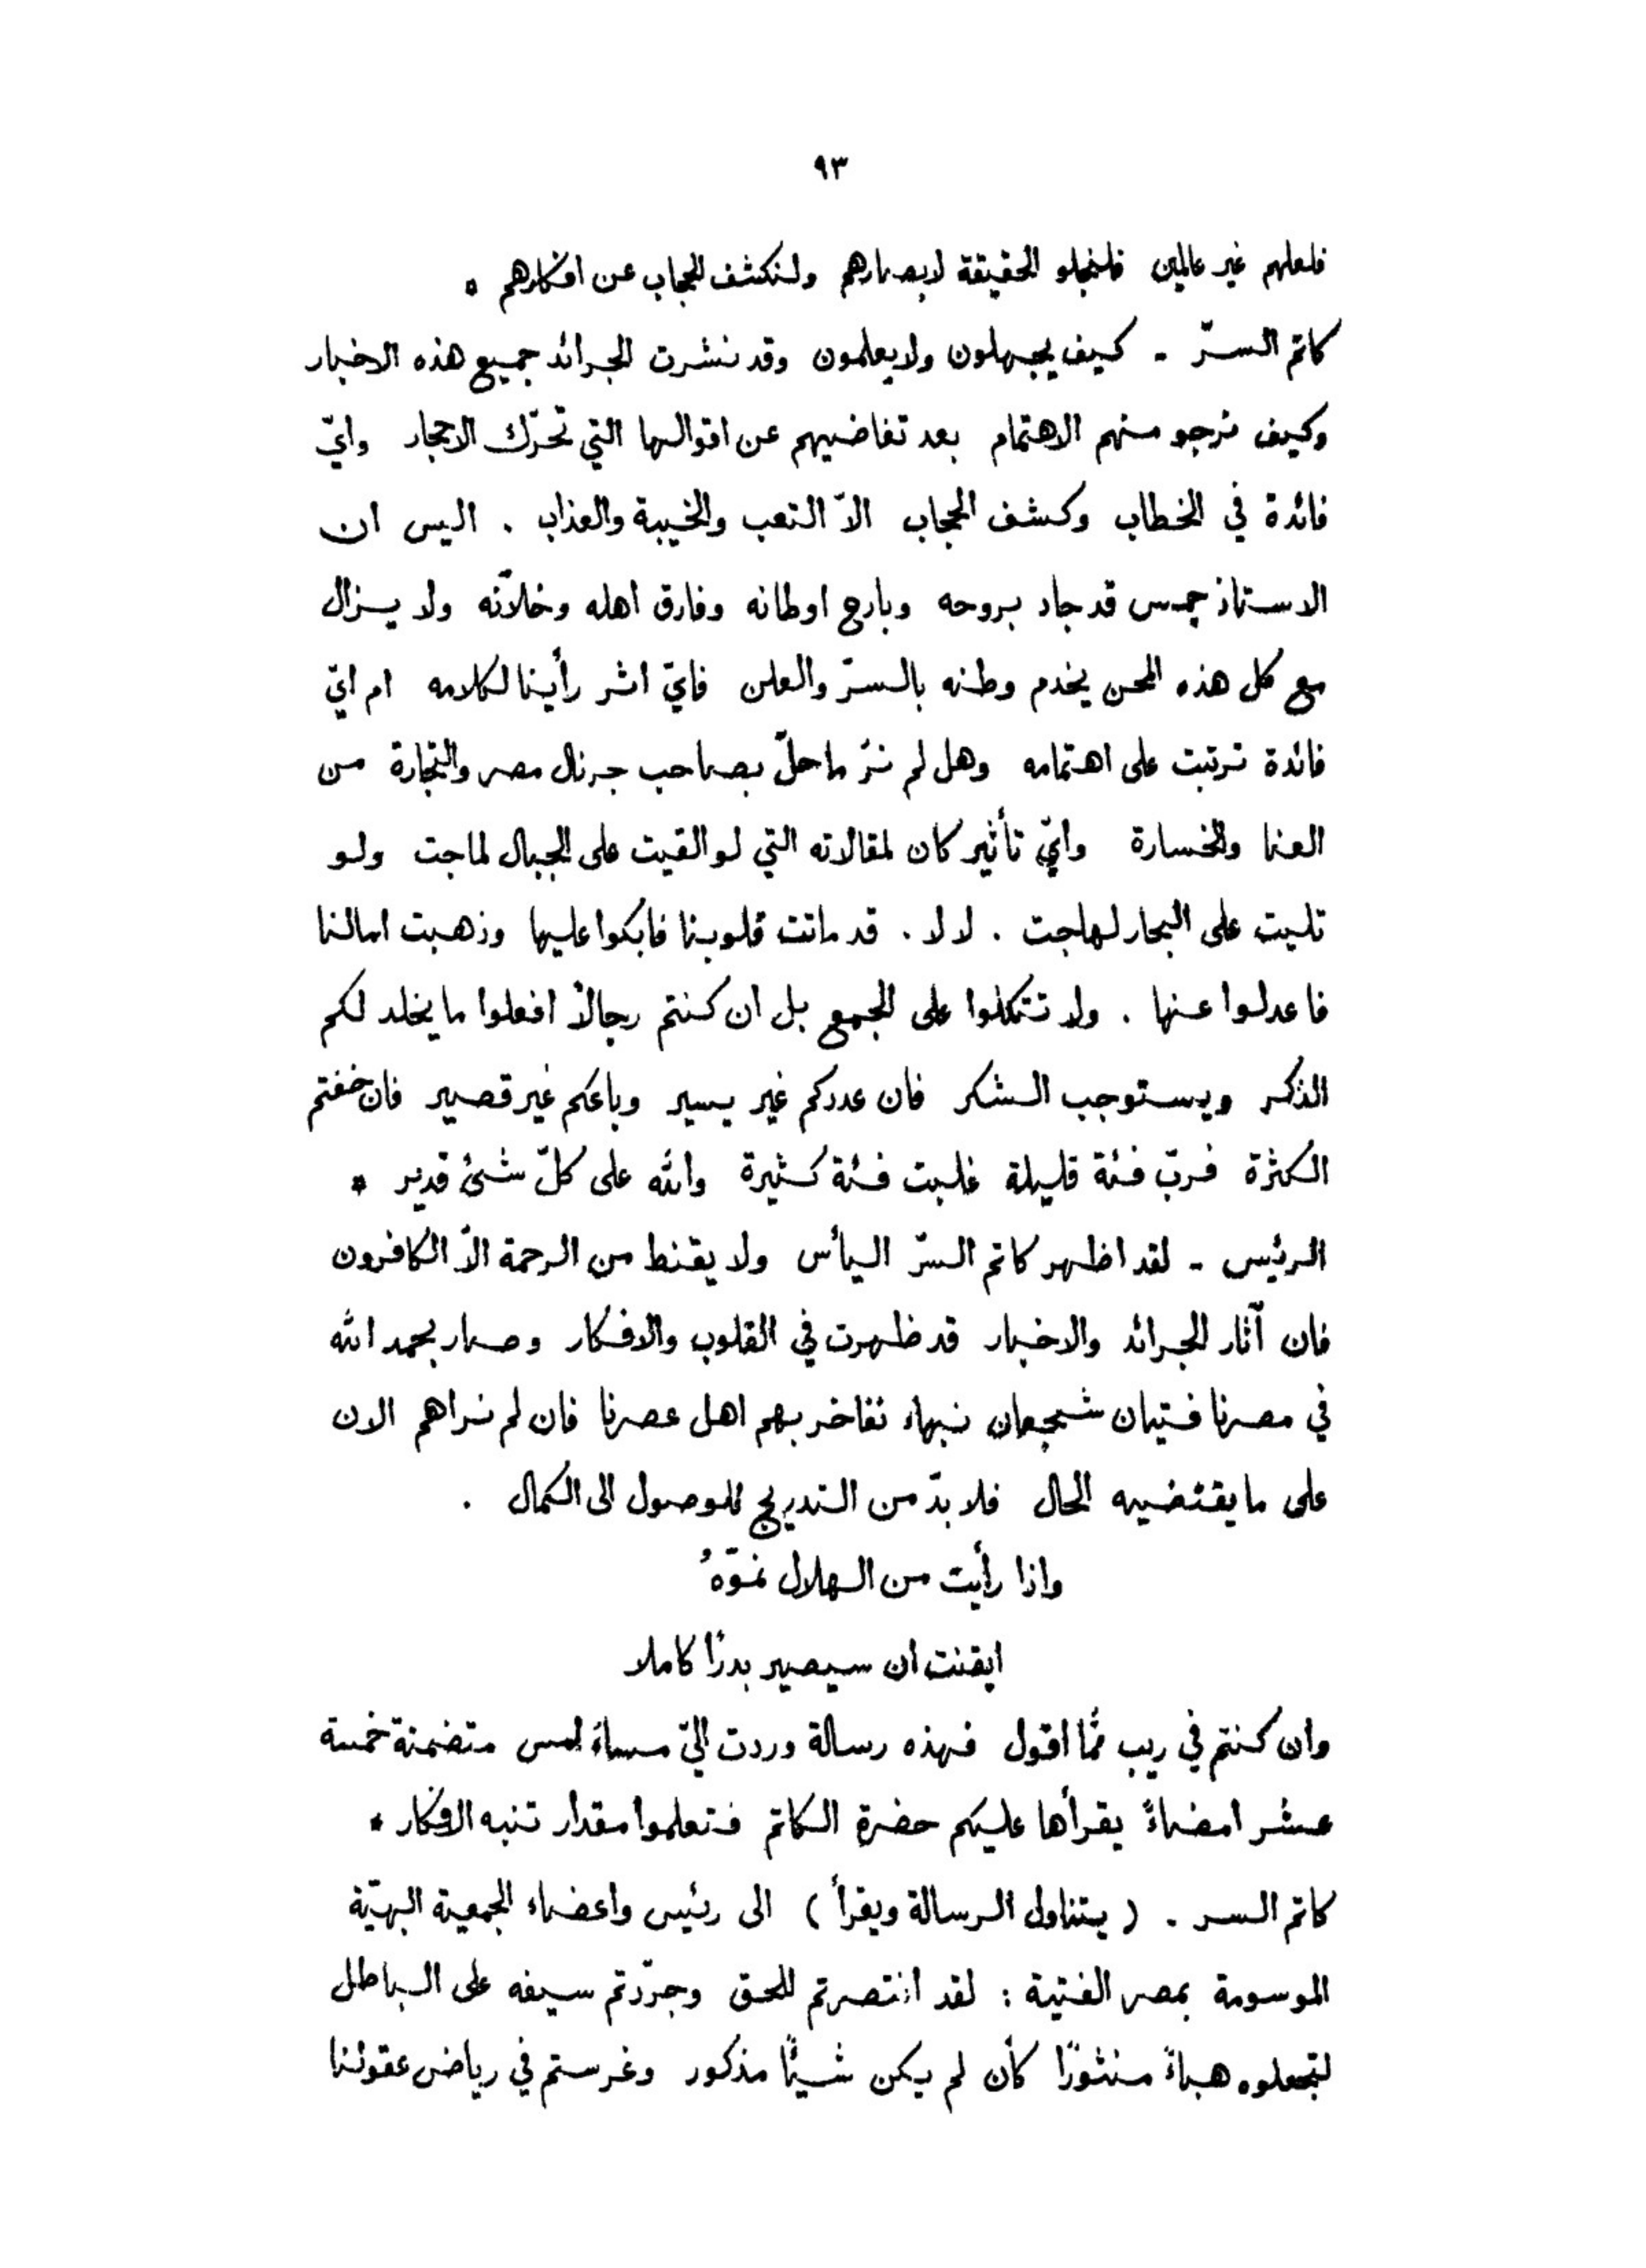 ٩٣
فلعلهم غير عالمين فلنجلو الحقيقة لابصارهم ولنكشف الحجاب عن افكارهم .
كاتم السرّ - كيف يجهلون ولا يعلمون وقد نشرت الجرائد جميع هذه الاخبار
وكيف نرجو منهم الاهتمام بعد تغاضيهم عن اقوالها التي تحرّك الاحجار وايّ
فائدة في الخطاب وكشف الحجاب الاّ التعب والخيبة والعذاب . اليس ان
الاستاذ جمس قد جاد بروحه وبارح اوطانه وفارق اهله وخلاّنه ولا يزال
مع كل هذه المحن يخدم وطنه بالسرّ والعلن فايّ اثر رأينا لكلامه ام ايّ
فائدة ترتبت على اهتمامه وهل لم نرَ ما حلّ بصاحب جرنال مصر والتجارة من
العنا والخسارة وايّ تأثير كان لمقالاته التي لو القيت على الجبال لماجت ولو
تليت على البحار لهاجت . لا لا . قد ماتت قلوبنا فابكوا عليها وذهبت امالنا
فاعدلوا عنها . ولا تتكلوا على الجمع بل ان كنتم رجالاً افعلوا ما يخلد لكم
الذكر ويستوجب الشكر فان عددكم غير يسير وباعكم غير قصير فان خفتم
الكثرة فربّ فئة قليلة غلبت فئة كثيرة والله على كلّ شئ قدير *
الرئيس - لقد اظهر كاتم السرّ اليأس ولا يقنط من الرحمة الاّ الكافرون
فان آثار الجرائد والاخبار قد ظهرت في القلوب والافكار وصار بحمد الله
في مصرنا فتيان شجعان نبهاء نفاخر بهم اهل عصرنا فان لم نراهم الان
على ما يقتضيه الحال فلا بدّ من التدريج للوصول الى الكمال .
واذا رأيت من الهلال نموّهُ
ايقنت ان سيصير بدرًا كاملا
وان كنتم في ريب ممّا اقول فهذه رسالة وردت اليّ مساءَ امس متضمنة خمسة
عشر امضاءً يقرأها عليكم حضرة الكاتم فتعلموا مقدار تنبه الافكار *
كاتم السر . ( يتناول الرسالة ويقرأ ) الى رئيس واعضاء الجمعية البهيّة
الموسومة بمصر الفتية : لقد انتصرتم للحق وجرّدتم سيفه على الباطل
لتجعلوه هباءً منثورًا كأن لم يكن شيئًا مذكور وغرستم في رياض عقولنا